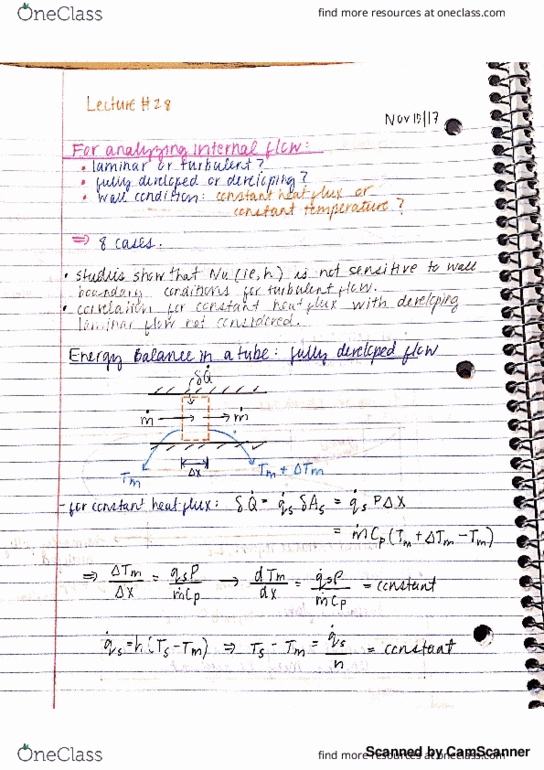 OneClass
find more resources at oneclass.com
Lecture #28
Nov 15/17
For analyzing internal flow:
• laminar or turbulent?
• fully developed or developing?
• wall condition: constant heat flux or
constant temperature?
⇒ 8 cases.
• studies show that Nu (ie, h) is not sensitive to wall
boundary conditions for turbulent flow.
• correlation for constant heat flux with developing
laminar flow not considered.
Energy Balance in a tube: fully developed flow
δQ̇
ṁ → → ṁ
Δx
Tm Tm + ΔTm
- for constant heat flux: δQ̇ = q̇s δAs = q̇s PΔX
= ṁCp(Tm + ΔTm - Tm)
⇒ ΔTm/ΔX = q̇sP/ṁCp → dTm/dx = q̇sP/ṁCp = constant
q̇s = h(Ts - Tm) ⇒ Ts - Tm = q̇s/h = constant
Scanned by CamScanner
OneClass
find more resources at oneclass.com